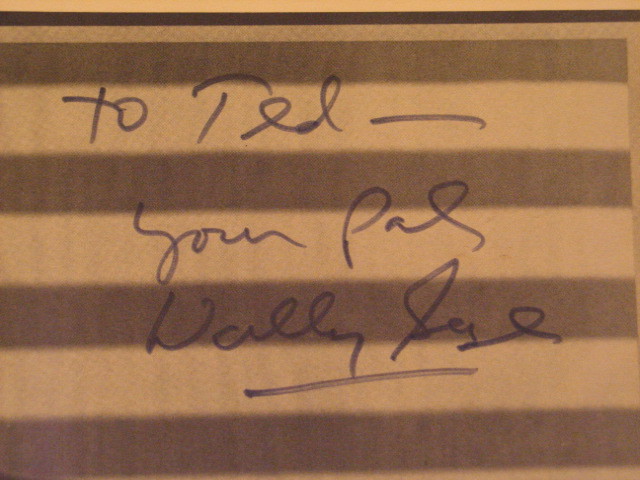 to Ted —
your Pal
Wally